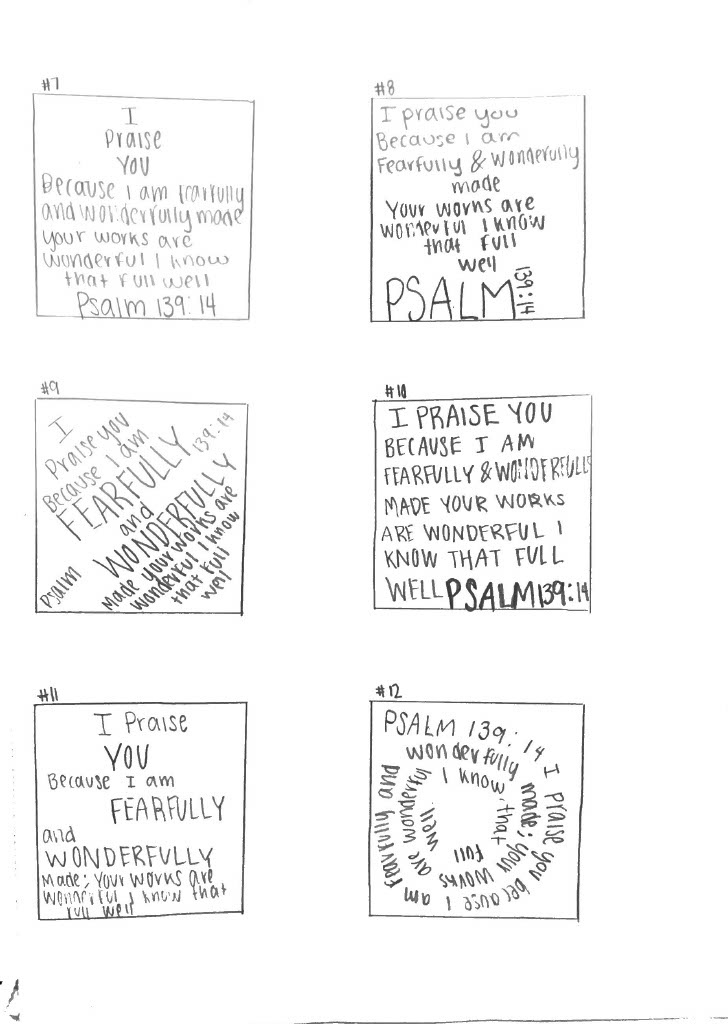 #7
I
Praise
YOU
Because I am fearfully
and wonderfully made
your works are
wonderful I know
that full well
Psalm 139:14
#8
I praise you
Because I am
Fearfully & Wonderfully
made
Your works are
wonderful I know
that full
well
PSALM 139:14
#9
I
Praise you
Because I am
FEARFULLY
139:14
and
WONDERFULLY
Made your works are
wonderful I know
that full
well
Psalm
#10
I PRAISE YOU
BECAUSE I AM
FEARFULLY & WONDERFULLY
MADE YOUR WORKS
ARE WONDERFUL I
KNOW THAT FULL
WELL PSALM 139:14
#11
I Praise
YOU
Because I am
FEARFULLY
and
WONDERFULLY
Made; Your works are
wonderful I know that
full well
#12
PSALM 139:14 I praise you because I am fearfully and wonderfully made; your works are wonderful I know that full well.